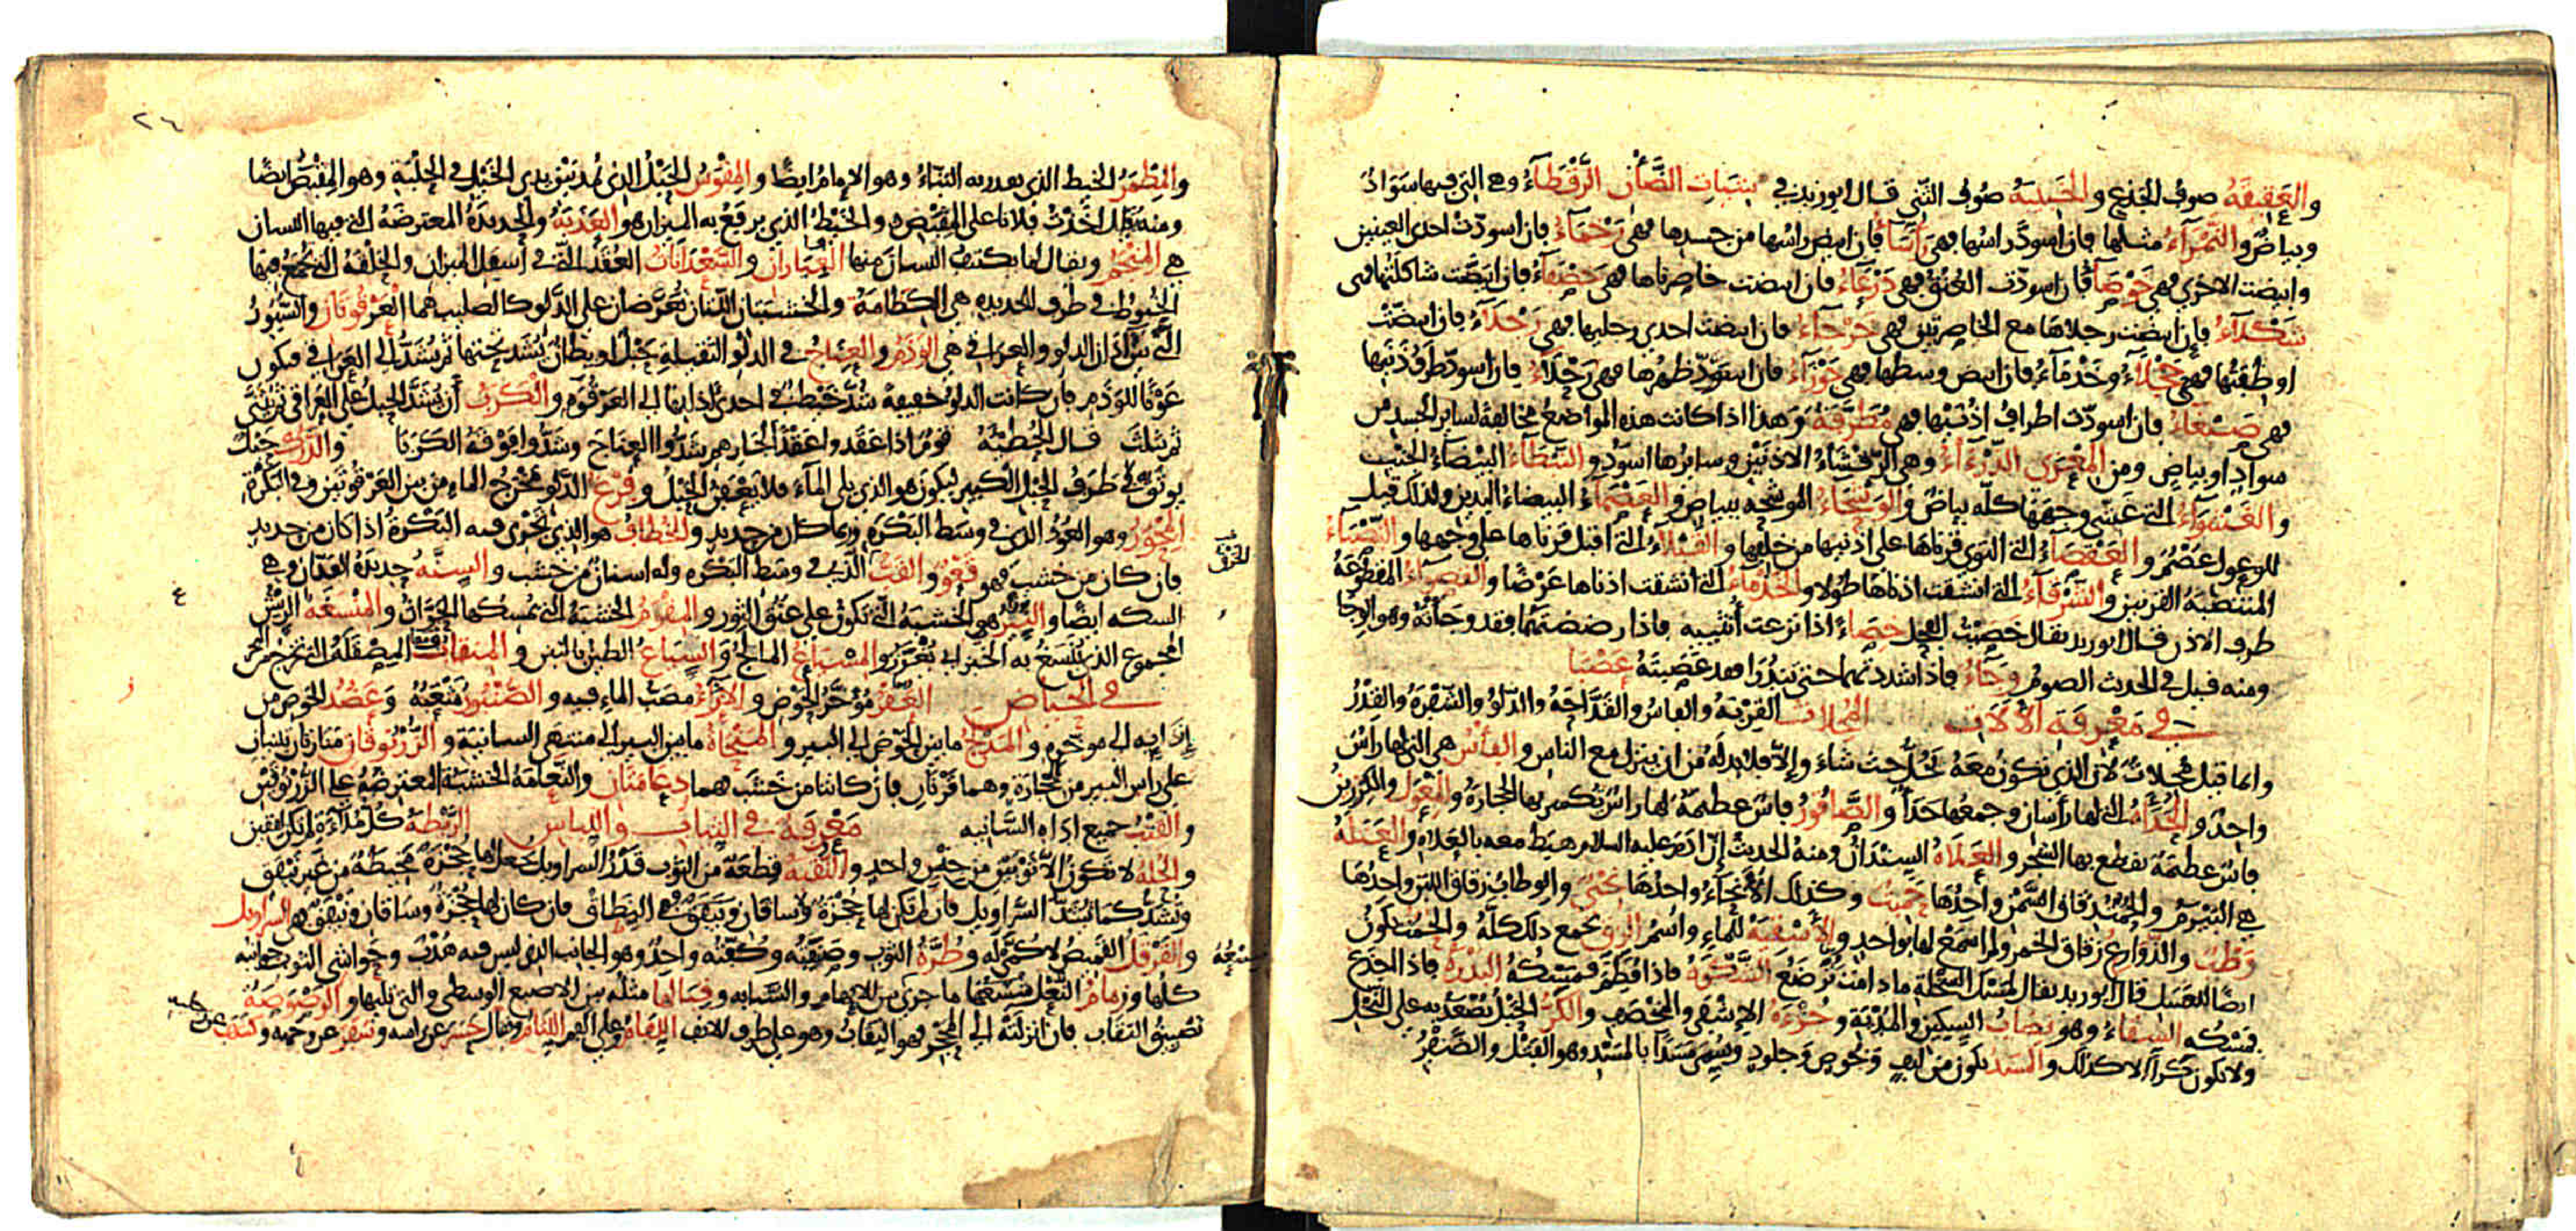 والعقيقة صوف الجذع والجنيبة صوف الثني قال ابو زيد في شيات الضأن الرقطاء وهي التي فيها سواد
وبياض والنمراء مثلها فان اسود راسها فهي رأساء فان ابيض راسها من جسدها فهي رخماء فان اسودت احدى العينين
وابيضت الاخرى فهي خوصاء فان اسودت العنق فهي درعاء فان ابيضت خاصرتاها فهي خصفاء فان ابيضت شاكلتها فهي
شكلاء فان ابيضت رجلاها مع الخاصرتين فهي خرجاء فان ابيضت احدى رجليها فهي رجلاء فان ابيضت
اوظفتها فهي حجلاء وخدماء فان ابيض وسطها فهي جوزاء فان اسود ظهرها فهي رحلاء فان اسود طرف ذنبها
فهي صبغاء فان اسودت اطراف اذنيها فهي مطرفة وهذا اذا كانت هذه المواضع مخالفة لسائر الجسد من
سواد او بياض ومن المعزى الذرءاء وهي الرقشاء الاذنين وسايرها اسود والنبطاء البيضاء الجنب
والغشواء التي غشي وجهها كله بياض والوشحاء الموشحة ببياض والعصماء البيضاء اليدين ولذلك قيل
للوعول عصم والعقصاء التي التوى قرناها على اذنيها من خلفها والقبلاء التي اقبل قرناها على وجهها والنصباء
المنتصبة القرنين والشرقاء التي انشقت اذناها طولا والخذماء التي انشقت اذناها عرضا والقصواء المقطوعة
طرف الاذن قال ابو زيد يقال خصيت الفحل خصاء اذا نزعت أنثييه فاذا رضضتهما فقد وجأته وهو الوجا
ومنه قيل في الحديث الصوم وجاء فاذا شددتهما حتى تندرا فقد عصبته عصبا
في معرفة الآلات المحلات القربة والفاس والقداحة والدلو والشفرة والقدر
وانما قيل محلات لان الذي تكون معه يحل حيث شاء والا فلا بد له من ان ينزل مع الناس والفأس هي التي لها راس
واحد والحدأة التي لها رأسان وجمعها حدأ والصاقور فاس عظيمة لها راس تكسر بها الحجارة والمعول والكرزن
فاس عظيمة يقطع بها الشجر والعلاة السندان ومنه الحديث ان آدم عليه السلام هبط معه بالعلاة والعتلة
هي البيرم والحمت زقاق السمن واحدها حميت وكذلك الانحاء واحدها نحي والوطاب زقاق اللبن واحدها
وطب والذوارع زقاق الخمر ولم اسمع لها بواحد والاسقية للماء واسم الزق يجمع ذلك كله والحميت يكون
ايضا للعسل قال ابو زيد يقال لمسك السخلة ما دامت ترضع الشكوة فاذا فطم فمسكه البدرة فاذا اجذع
فمسكه السقاء وهو نصاب السكين والمدية وجزءة الاشفى والمخصف والكر الحبل يصعد به على النخل
ولا يكون كرا الا كذلك والمسد يكون من ليف وخوص وجلود وسمي مسدا بالمسد وهو الفتل والضفر
٢٤
والمطمر الخيط الذي يقدر به البناء وهو الامام ايضا والمقوس الحبل الذي يمد بين يدي الخيل في الحلبة وهو المقبض ايضا
ومنه يقال اخذت فلانا على المقبض والخيط الذي يرفع به الميزان هو العذبة والحديدة المعترضة التي فيها اللسان
هي المنجم ويقال لما يكتنف اللسان منها الفياران والسعدانات العقد التي في أسفل الميزان والحلقة التي تجمع فيها
الخيوط في طرف الحديدة هي الكظامة والخشبتان اللتان تعرضان على الدلو كالصليب هما العرقوتان والسيور
التي بين آذان الدلو والعراقي هي الوذم والعناج في الدلو الثقيلة حبل او بطان يشد تحتها ثم يشد الى العراقي فيكون
عونا للوذم فان كانت الدلو خفيفة شد خيط في احدى آذانها الى العرقوة والكرب أن يشد الحبل على العراقي ثم يثنى
ثم يثلث قال الحطيئة قوم اذا عقدوا عقدا لجارهم شدوا العناج وشدوا فوقه الكربا والدرك حبل
يوثق في طرف الحبل الكبير ليكون هو الذي يلي الماء فلا يعفن الحبل وفرغ الدلو مخرج الماء من بين العرقوتين وفي البكرة
المحور وهو العود الذي في وسط البكرة وربما كان من حديد والخطاف هو الذي تجري فيه البكرة اذا كان من حديد
فان كان من خشب فهو قعو والقب الذي في وسط البكرة وله اسنان من خشب والسنة حديدة الفدان وهي
السكة ايضا والنير هي الخشبة التي تكون على عنق الثور والمقوم الخشبة التي يمسكها الحراث والمنسغة الريش
المجموع الذي ينسغ به الخبز اي يغرز والمسياع المالج والسياع الطين بالتبن
في الحياض العقر مؤخر الحوض والازاء مصب الماء فيه والصنبور مثعبه وعضد الحوض من
إزائه الى موخره والمدلج ما بين الحوض الى البير والمنحاة ما بين البير الى منتهى السانية والزرنوقان منارتان تبنيان
على راس البير من حجارة وهما قرنان فان كانتا من خشب فهما دعامتان والنعامة الخشبة المعترضة على الزرنوقين
والقتب جميع اداة السانية معرفة في الثياب واللباس الريطة كل ملاءة لم تكن لفقين
والحلة لا تكون الا ثوبين من جنس واحد والنقبة قطعة من الثوب قدر السراويل يجعل لها حجزة مخيطة من غير نيفق
وتشد كما يشد السراويل فان لم تكن لها حجزة ولا ساقان ونيفق فهي النطاق فان كان لها حجزة وساقان ونيفق فهي السراويل
والقرقل القميص لا كمي له وطرة الثوب وصنفته وكفته واحد وهو الجانب الذي ليس فيه هدب وحواشي الثوب جوانبه
كلها وزمام النعل شسعها ما جرى بين الابهام والسبابة وقبالها مثله بين الاصبع الوسطى والتي تليها والوصوصة
تضييق النقاب فان انزلته الى المحجر فهو النقاب وهو على طرف الانف اللفام وعلى الفم اللثام ويقال حسر عن راسه وسفر عن وجهه وكشف عن